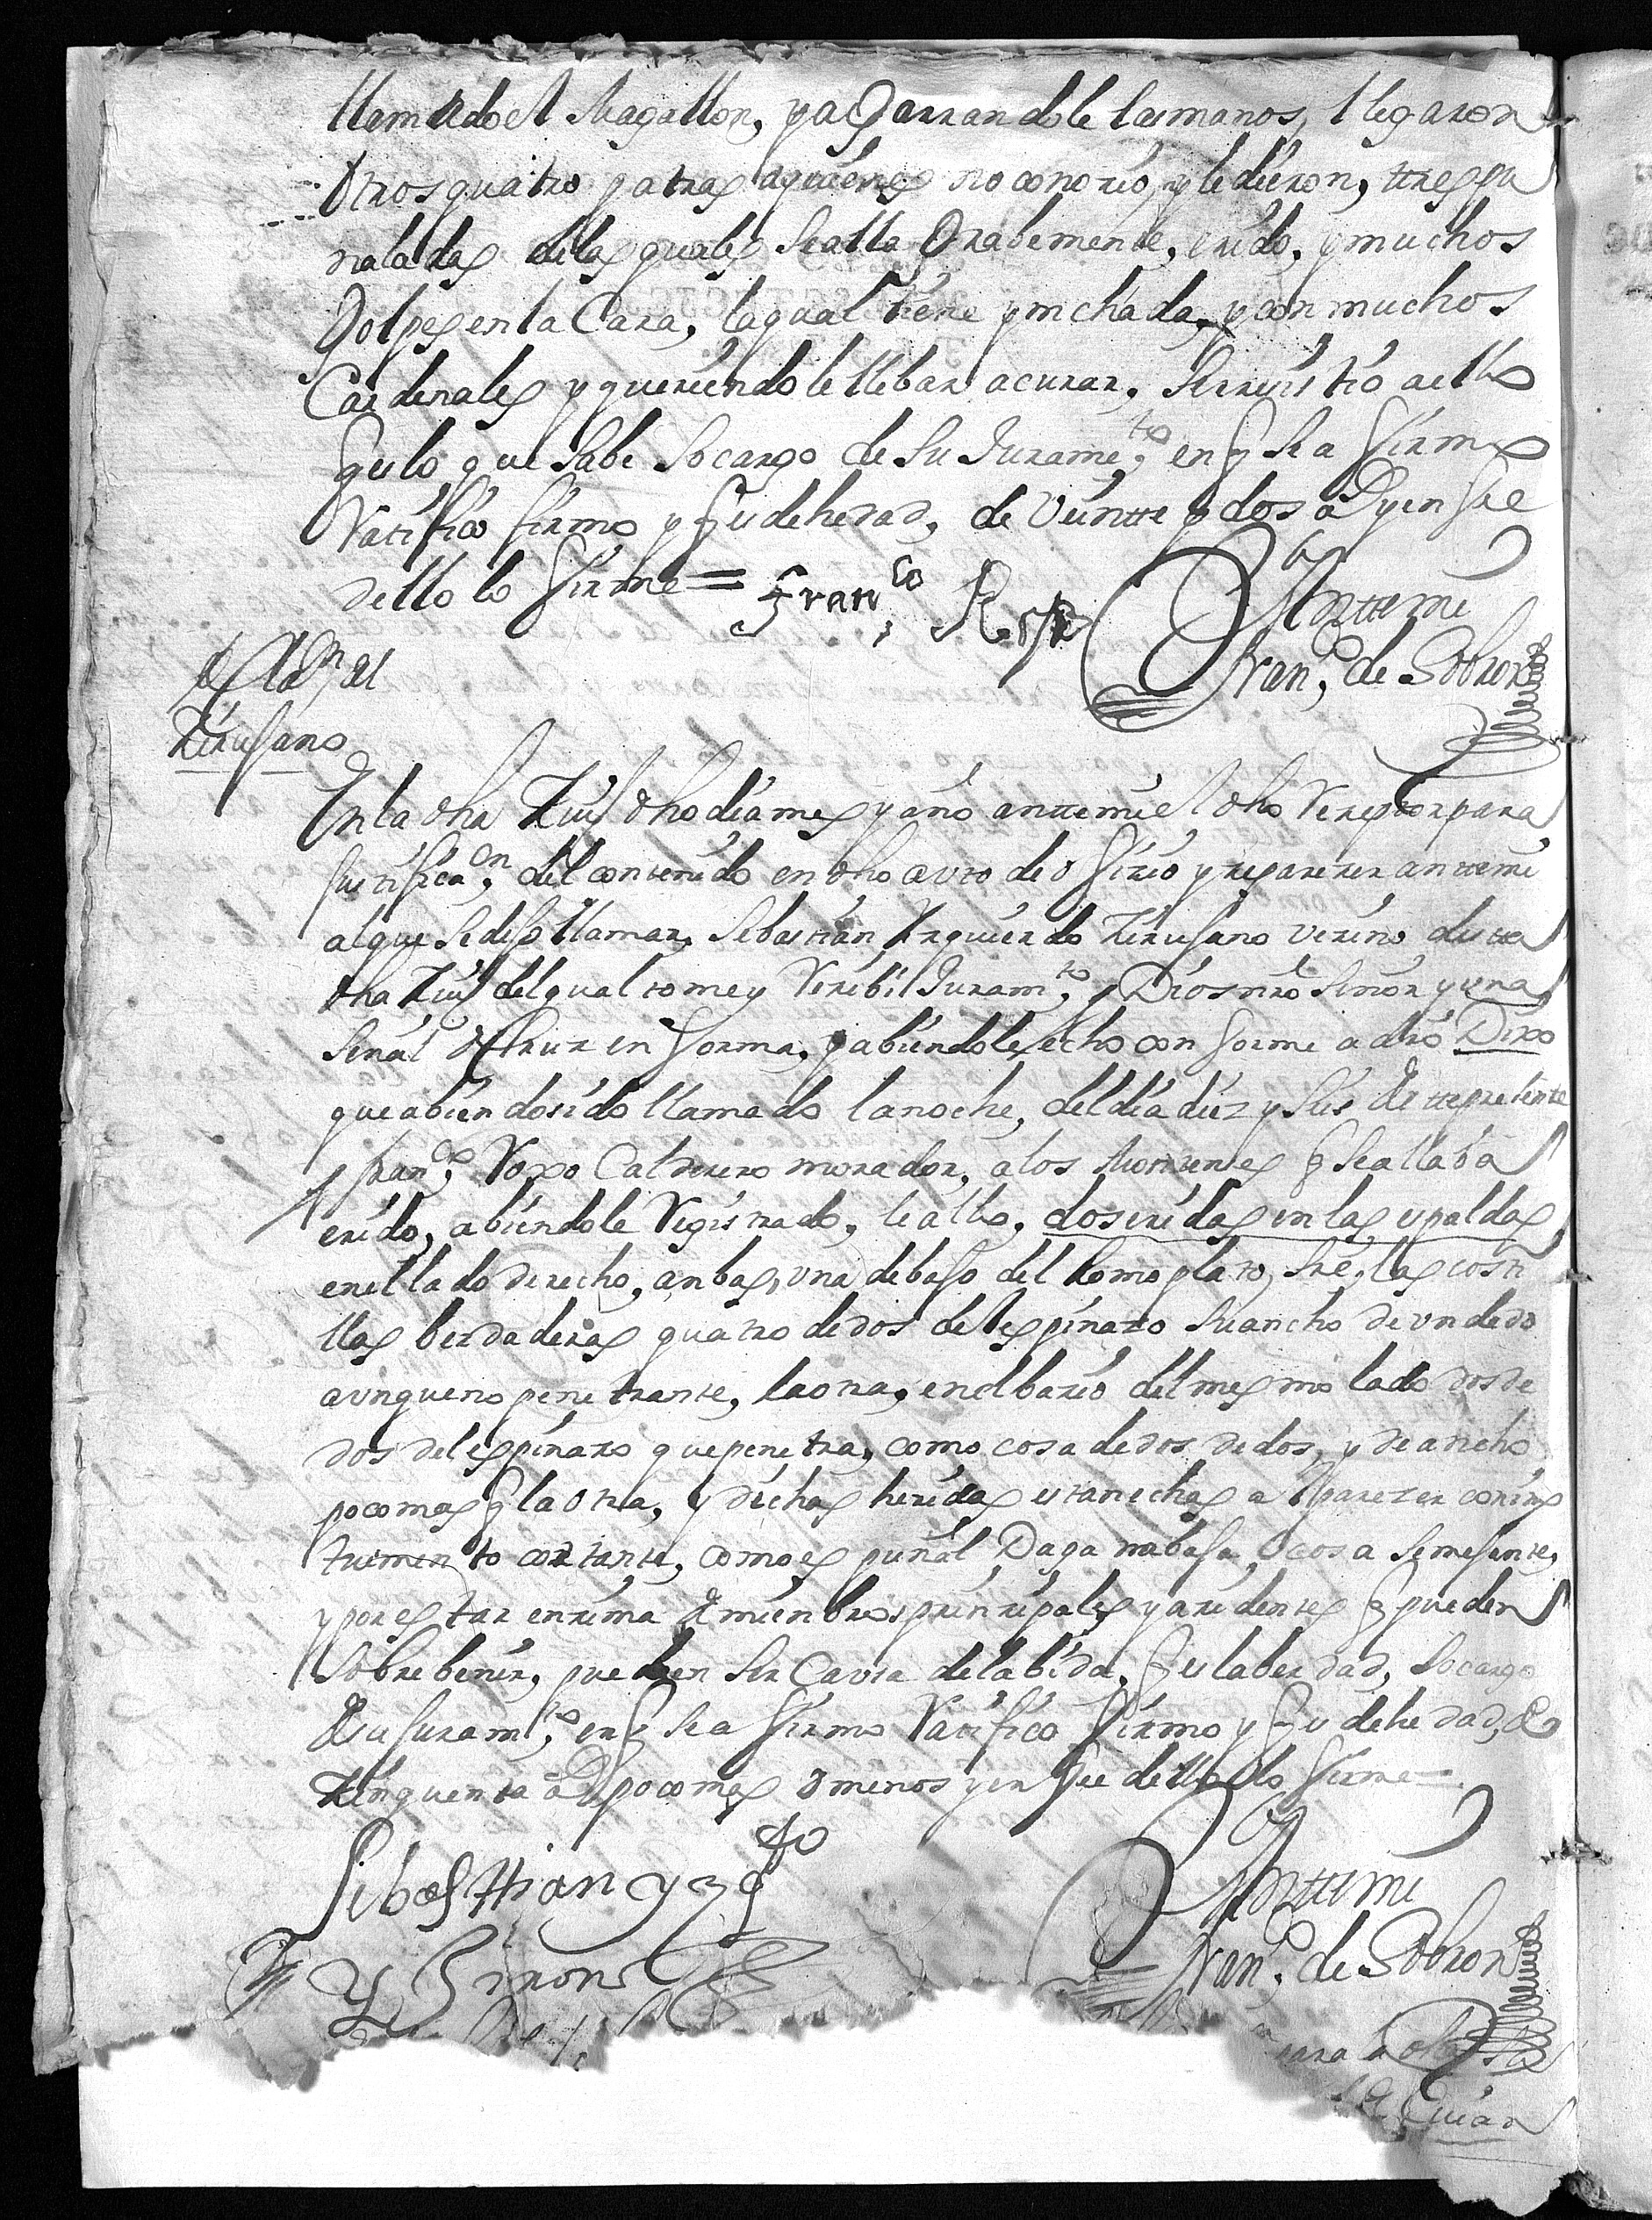 llamado el Magallon, y agarrandole las manos, llegaron
otros quatro patras a quienes no conozio, y le dieron, tres pu
naladas de las quales se alla grabemente, erido, y muchos
golpes en la Cara, la qual tiene ynchada, y con muchos
Cardenales y queriendole llebar a curar, se rresistio a ello
q es lo que sabe so cargo de su Juramto en q se a firmo
Ratifico firmo y q es de hedad, de veintte y dos as y en fee
dello lo firme = Franco Roxo
Antte mi
Franco de Sobron
Dn del
Zirujano
En la dha Ziud dho dia mes y año antte mi el dho Rezeptor para
justificaon del contenido en dho auto de ofizio y rezparezer antte mi
al que se dijo llamar, Sebastian Yzquierdo Zirujano vezino destta
dha Ziud del qual tome y Rezibi Juramto y Dios nro señor y una
señal de Cruz en forma, y abiendole echo conforme a dro Dixo
que abiendo sido llamado la noche, del dia diez y seis destte presente
Franco Roxo Calderero morador, a los Monzones q se allaba
erido, abiendole Registrado, le allo, dos eridas en las espaldas
en el lado derecho, anbas, una debajo del Homoplato, sre, las costi
llas berdaderas quatro dedos del espinazo su ancho de un dedo
aunque no penetrante, la otra, en el bazio del mesmo lado dos de
dos del espinazo que penetra, como cosa de dos dedos, y de ancho
poco mas q la otra, y dichas heridas estan echas al parezer con ins
trumento cortante, como es puñal Daga nabaja, o cosa semejante,
y por estar enzima de mienbros prinzipales y azidentes q pueden
sobrebenir, pueden ser Causa de la bida, q es la berdad, so cargo
de su juramto, en q se a firmo Ratifico firmo y q es de hedad, de
zinquenta as poco mas o menos y en fee dello lo firme =
Sebasttian yzqdo
Y Giron
Antte mi
Franco de Sobron
para